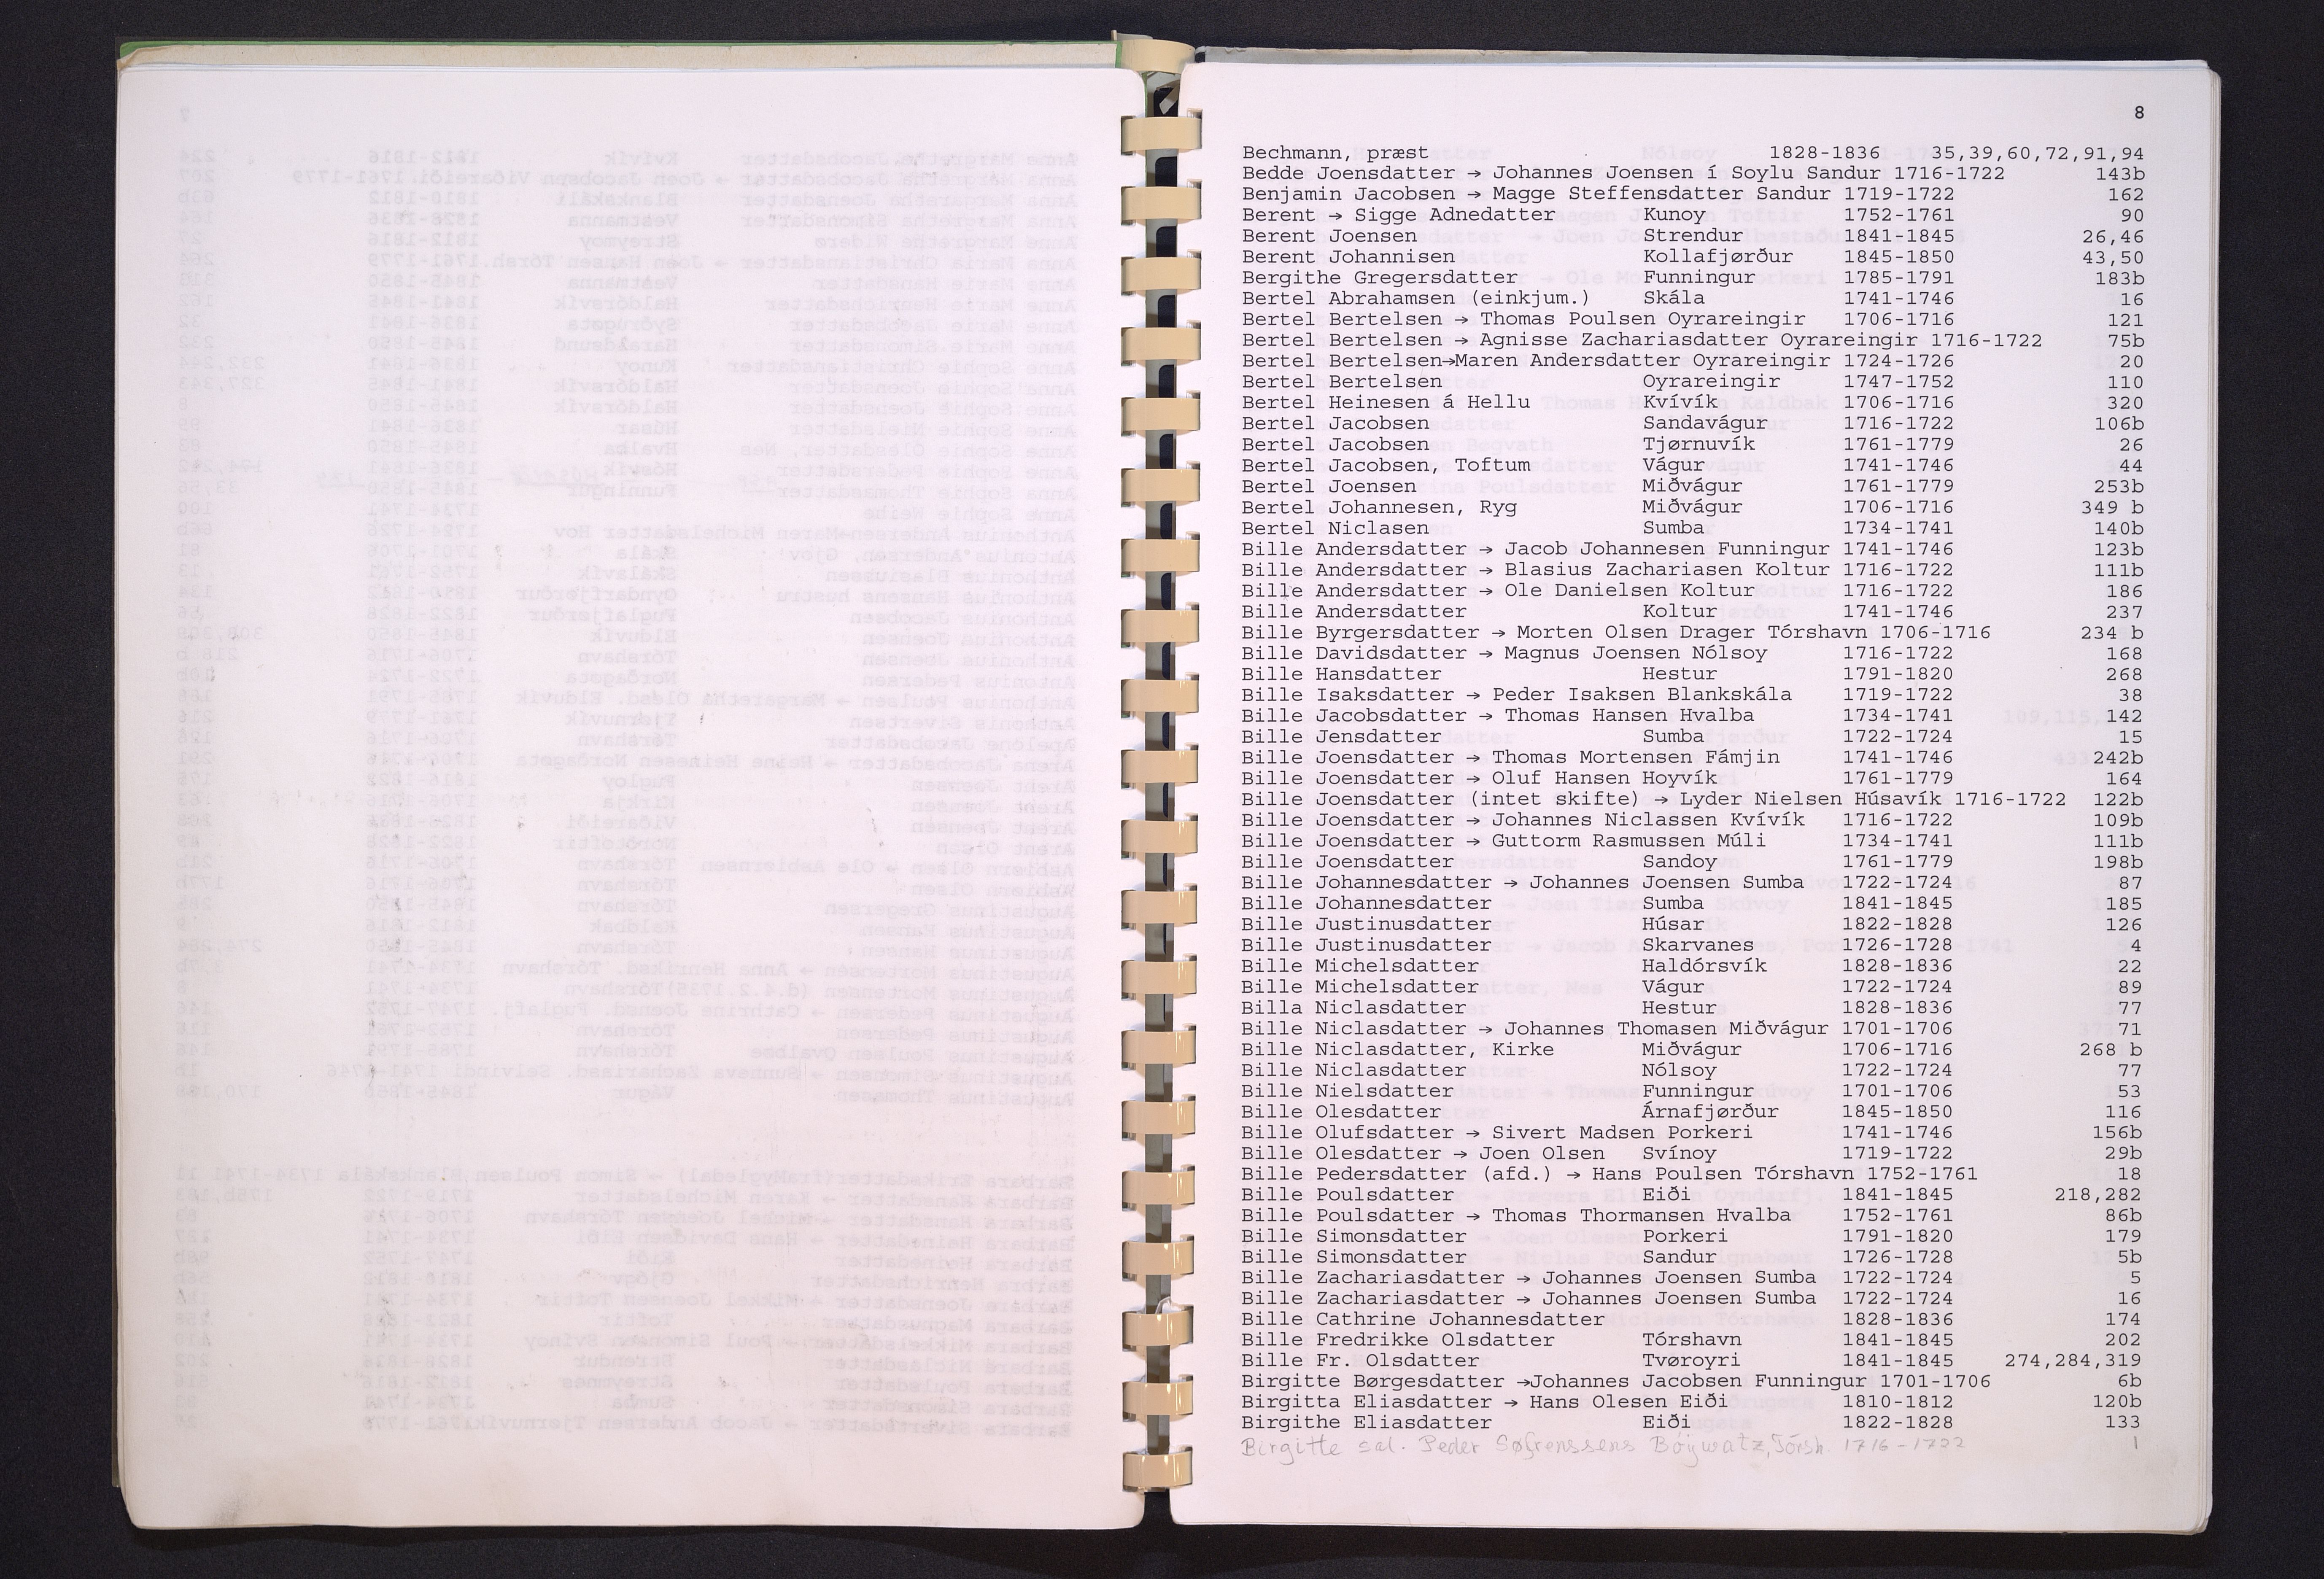 8
Bechmann, præst 1828-1836 35,39,60,72,91,94
Bedde Joensdatter → Johannes Joensen í Soylu Sandur 1716-1722 143b
Benjamin Jacobsen → Magge Steffensdatter Sandur 1719-1722 162
Berent → Sigge Adnedatter Kunoy 1752-1761 90
Berent Joensen Strendur 1841-1845 26,46
Berent Johannisen Kollafjørður 1845-1850 43,50
Bergithe Gregersdatter Funningur 1785-1791 183b
Bertel Abrahamsen (einkjum.) Skála 1741-1746 16
Bertel Bertelsen → Thomas Poulsen Oyrareingir 1706-1716 121
Bertel Bertelsen → Agnisse Zachariasdatter Oyrareingir 1716-1722 75b
Bertel Bertelsen→Maren Andersdatter Oyrareingir 1724-1726 20
Bertel Bertelsen Oyrareingir 1747-1752 110
Bertel Heinesen á Hellu Kvívík 1706-1716 320
Bertel Jacobsen Sandavágur 1716-1722 106b
Bertel Jacobsen Tjørnuvík 1761-1779 26
Bertel Jacobsen, Toftum Vágur 1741-1746 44
Bertel Joensen Miðvágur 1761-1779 253b
Bertel Johannesen, Ryg Miðvágur 1706-1716 349 b
Bertel Niclasen Sumba 1734-1741 140b
Bille Andersdatter → Jacob Johannesen Funningur 1741-1746 123b
Bille Andersdatter → Blasius Zachariasen Koltur 1716-1722 111b
Bille Andersdatter → Ole Danielsen Koltur 1716-1722 186
Bille Andersdatter Koltur 1741-1746 237
Bille Byrgersdatter → Morten Olsen Drager Tórshavn 1706-1716 234 b
Bille Davidsdatter → Magnus Joensen Nólsoy 1716-1722 168
Bille Hansdatter Hestur 1791-1820 268
Bille Isaksdatter → Peder Isaksen Blankskála 1719-1722 38
Bille Jacobsdatter → Thomas Hansen Hvalba 1734-1741 142
Bille Jensdatter Sumba 1722-1724 15
Bille Joensdatter → Thomas Mortensen Fámjin 1741-1746 242b
Bille Joensdatter → Oluf Hansen Hoyvík 1761-1779 164
Bille Joensdatter (intet skifte) → Lyder Nielsen Húsavík 1716-1722 122b
Bille Joensdatter → Johannes Niclassen Kvívík 1716-1722 109b
Bille Joensdatter → Guttorm Rasmussen Múli 1734-1741 111b
Bille Joensdatter Sandoy 1761-1779 198b
Bille Johannesdatter → Johannes Joensen Sumba 1722-1724 87
Bille Johannesdatter Sumba 1841-1845 185
Bille Justinusdatter Húsar 1822-1828 126
Bille Justinusdatter Skarvanes 1726-1728 4
Bille Michelsdatter Haldórsvík 1828-1836 22
Bille Michelsdatter Vágur 1722-1724 89
Billa Niclasdatter Hestur 1828-1836 77
Bille Niclasdatter → Johannes Thomasen Miðvágur 1701-1706 71
Bille Niclasdatter, Kirke Miðvágur 1706-1716 268 b
Bille Niclasdatter Nólsoy 1722-1724 77
Bille Nielsdatter Funningur 1701-1706 53
Bille Olesdatter Árnafjørður 1845-1850 116
Bille Olufsdatter → Sivert Madsen Porkeri 1741-1746 156b
Bille Olesdatter → Joen Olsen Svínoy 1719-1722 29b
Bille Pedersdatter (afd.) → Hans Poulsen Tórshavn 1752-1761 18
Bille Poulsdatter Eiði 1841-1845 218,282
Bille Poulsdatter → Thomas Thormansen Hvalba 1752-1761 86b
Bille Simonsdatter Porkeri 1791-1820 179
Bille Simonsdatter Sandur 1726-1728 5b
Bille Zachariasdatter → Johannes Joensen Sumba 1722-1724 5
Bille Zachariasdatter → Johannes Joensen Sumba 1722-1724 16
Bille Cathrine Johannesdatter 1828-1836 174
Bille Fredrikke Olsdatter Tórshavn 1841-1845 202
Bille Fr. Olsdatter Tvøroyri 1841-1845 274,284,319
Birgitte Børgesdatter →Johannes Jacobsen Funningur 1701-1706 6b
Birgitta Eliasdatter → Hans Olesen Eiði 1810-1812 120b
Birgithe Eliasdatter Eiði 1822-1828 133
Birgitte sal. Peder Søfrenssens Bóÿwatz, Tórsh. 1716-1722 1